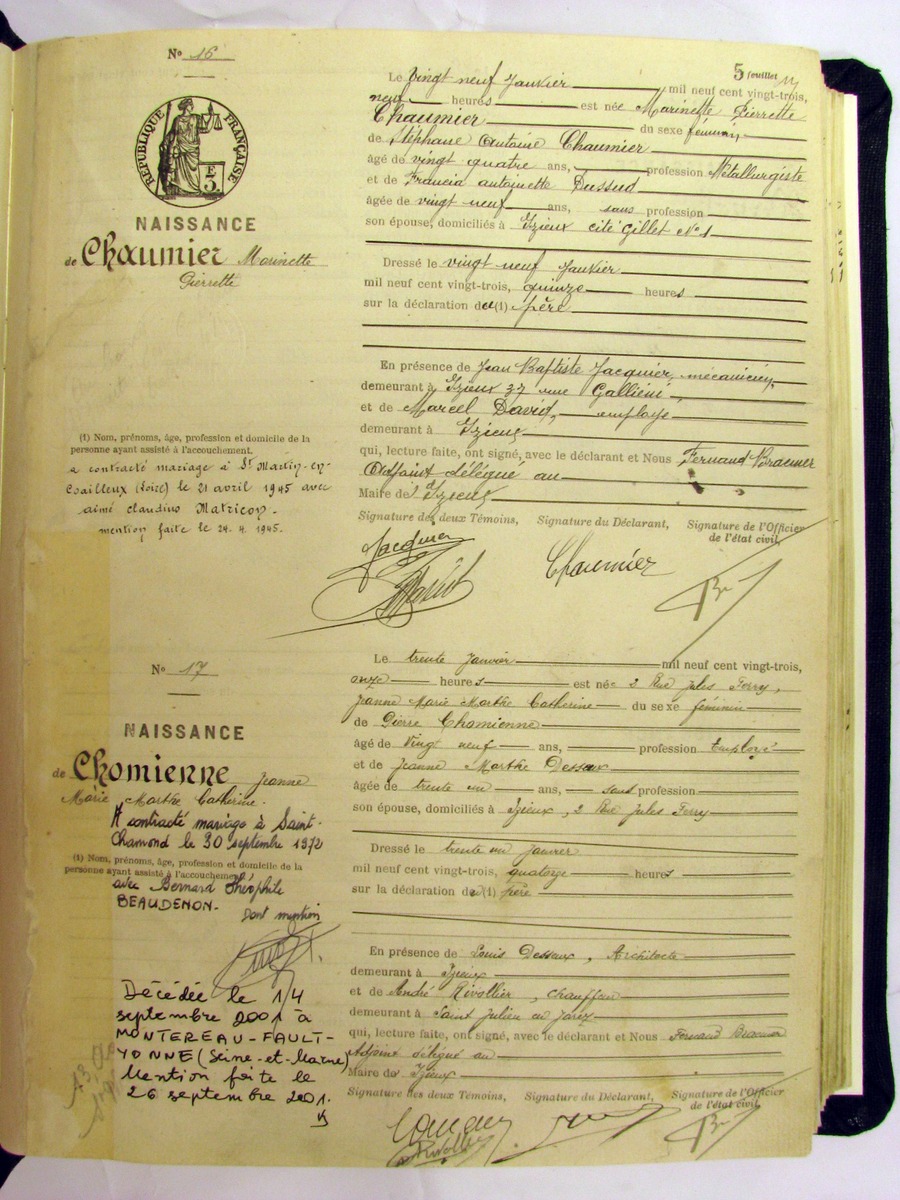 5 feuillet
No 16
RÉPUBLIQUE FRANÇAISE
E
3
NAISSANCE
de Chaumier Marinette
Pierrette
Le vingt neuf Janvier mil neuf cent vingt-trois,
neuf heures est née Marinette Pierrette
Chaumier du sexe féminin
de Stéphane Antoine Chaumier
âgé de vingt quatre ans, profession Métallurgiste
et de Francia antoinette Dussud
âgée de vingt neuf ans, sans profession
son épouse, domiciliés à Izieux cité Gillet No 1
Dressé le vingt neuf Janvier
mil neuf cent vingt-trois, quinze heures
sur la déclaration du (1) père
En présence de Jean Baptiste Jacquier, mécanicien,
demeurant à Izieux 37 rue Galliéni,
et de Marcel David, employé
demeurant à Izieux
qui, lecture faite, ont signé, avec le déclarant et Nous Fernand Braemer
Adjoint délégué au
Maire de Izieux
Signature des deux Témoins, Signature du Déclarant, Signature de l'Officier
de l'état civil,
Jacquier
David
Chaumier
(1) Nom, prénoms, âge, profession et domicile de la
personne ayant assisté à l'accouchement.
a contracté mariage à St Martin-en-
Coailleux (Loire) le 21 avril 1945 avec
aimé claudius Matricon
mention faite le 24. 4. 1945.
No 17
NAISSANCE
de Chomienne Jeanne
Marie Marthe Catherine.
A contracté mariage à Saint-
Chamond le 30 septembre 1972
(1) Nom, prénoms, âge, profession et domicile de la
personne ayant assisté à l'accouchement.
avec Bernard Théophile
BEAUDENON.
Dont mention
Décédée le 14
septembre 2001 à
MONTEREAU-FAULT-
YONNE (Seine-et-Marne)
Mention faite le
26 septembre 2001.
Le trente Janvier mil neuf cent vingt-trois,
onze heures est née 2 Rue Jules Ferry,
Jeanne Marie Marthe Catherine du sexe féminin
de Pierre Chomienne
âgé de Vingt neuf ans, profession Employé
et de Jeanne Marthe Dessaux
âgée de trente un ans, sans profession
son épouse, domiciliés à Izieux, 2 Rue Jules Ferry
Dressé le trente un janvier
mil neuf cent vingt-trois, quatorze heures
sur la déclaration du (1) père
En présence de Louis Dessaux, Architecte
demeurant à Izieux
et de André Rivollier, chauffeur
demeurant à Saint Julien en Jarez
qui, lecture faite, ont signé, avec le déclarant et Nous Fernand Braemer
Adjoint délégué au
Maire de Izieux
Signature des deux Témoins, Signature du Déclarant, Signature de l'Officier
de l'état civil,